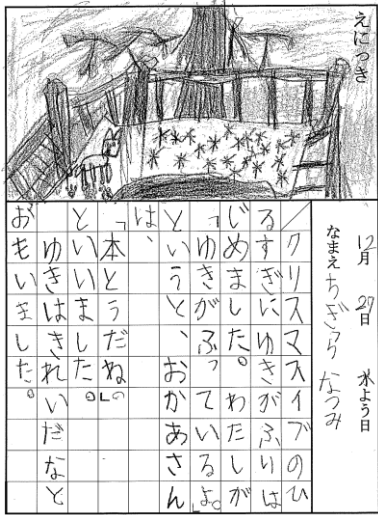 えにっき
12月27日水よう日
なまえ ちぎら なつみ
クリスマスイブのひ
るすぎにゆきがふりは
じめました。わたしが
「ゆきがふっているよ。」
というと、おかあさん
は、
「本とうだね。」
といいました。
ゆきはきれいだなと
おもいました。